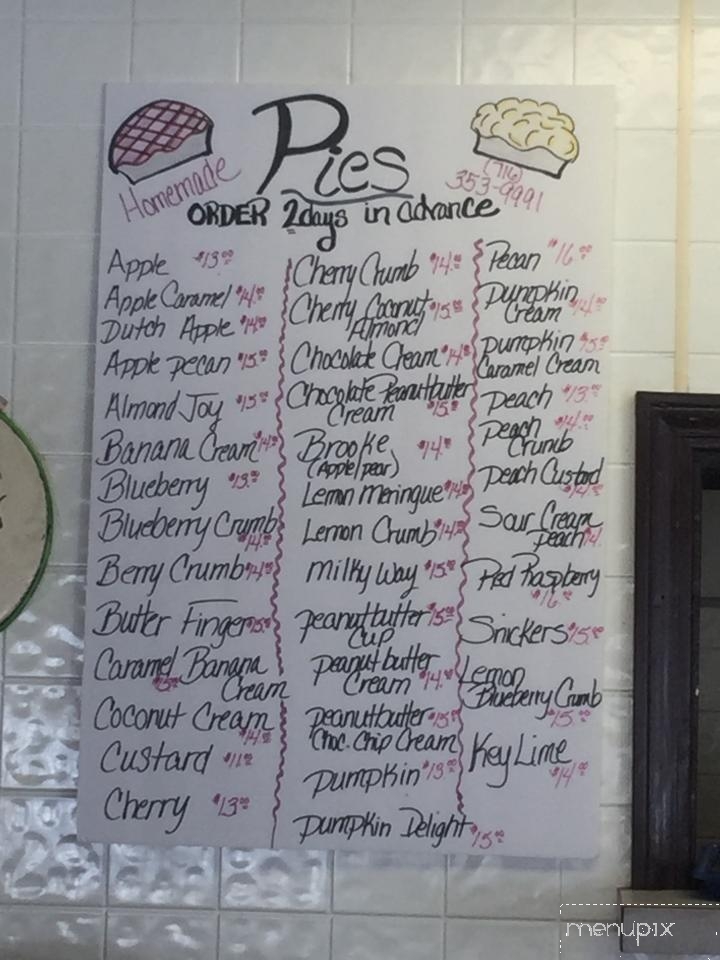 Pies
Homemade
(716)
353-9991
ORDER 2 days in advance
Apple $13.00
Apple Caramel $14.00
Dutch Apple $14.00
Apple pecan $15.00
Almond Joy $15.00
Banana Cream $14.00
Blueberry $13.00
Blueberry Crumb
$14.00
Berry Crumb $14.00
Butter Finger $15.00
Caramel Banana
$15.00 Cream
Coconut Cream
$14.00
Custard $11.00
Cherry $13.00
Cherry Crumb $14.00
Cherry Coconut $15.00
Almond
Chocolate Cream $14.00
Chocolate Peanutbutter
Cream $15.00
Brooke $14.00
(Apple/pear)
Lemon Meringue $14.00
Lemon Crumb $14.00
Milky Way $15.00
peanutbutter $15.00
Cup
peanut butter
Cream $14.00
peanutbutter $15.00
Choc. Chip Cream
pumpkin $13.00
Pumpkin Delight $15.00
Pecan $16.00
Pumpkin
Cream $14.00
pumpkin $15.00
Caramel Cream
peach $13.00
peach $14.00
Crumb
peach Custard
$14.00
Sour Cream
peach $14.
Red Raspberry
$16.00
Snickers $15.00
Lemon
Blueberry Crumb
$15.00
Key Lime
$14.00
menupix